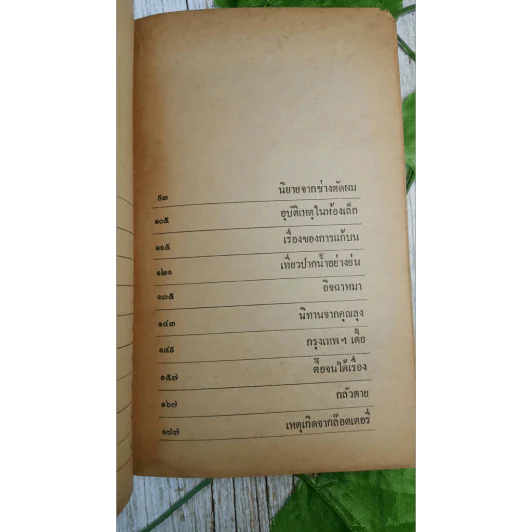 ๙๓ นิยายจากช่างตัดผม
๑๐๕ อุบัติเหตุในห้องเล็ก
๑๑๕ เรื่องของการแก้บน
๑๒๑ เที่ยวปากน้ำอย่างย่น
๑๓๕ อิจฉาหมา
๑๔๓ นิทานจากคุณลุง
๑๔๙ กรุงเทพ ฯ เตี้ย
๑๕๗ ตื๊อจนได้เรื่อง
๑๖๗ กลัวตาย
๑๗๗ เหตุเกิดจากล๊อตเตอรี่